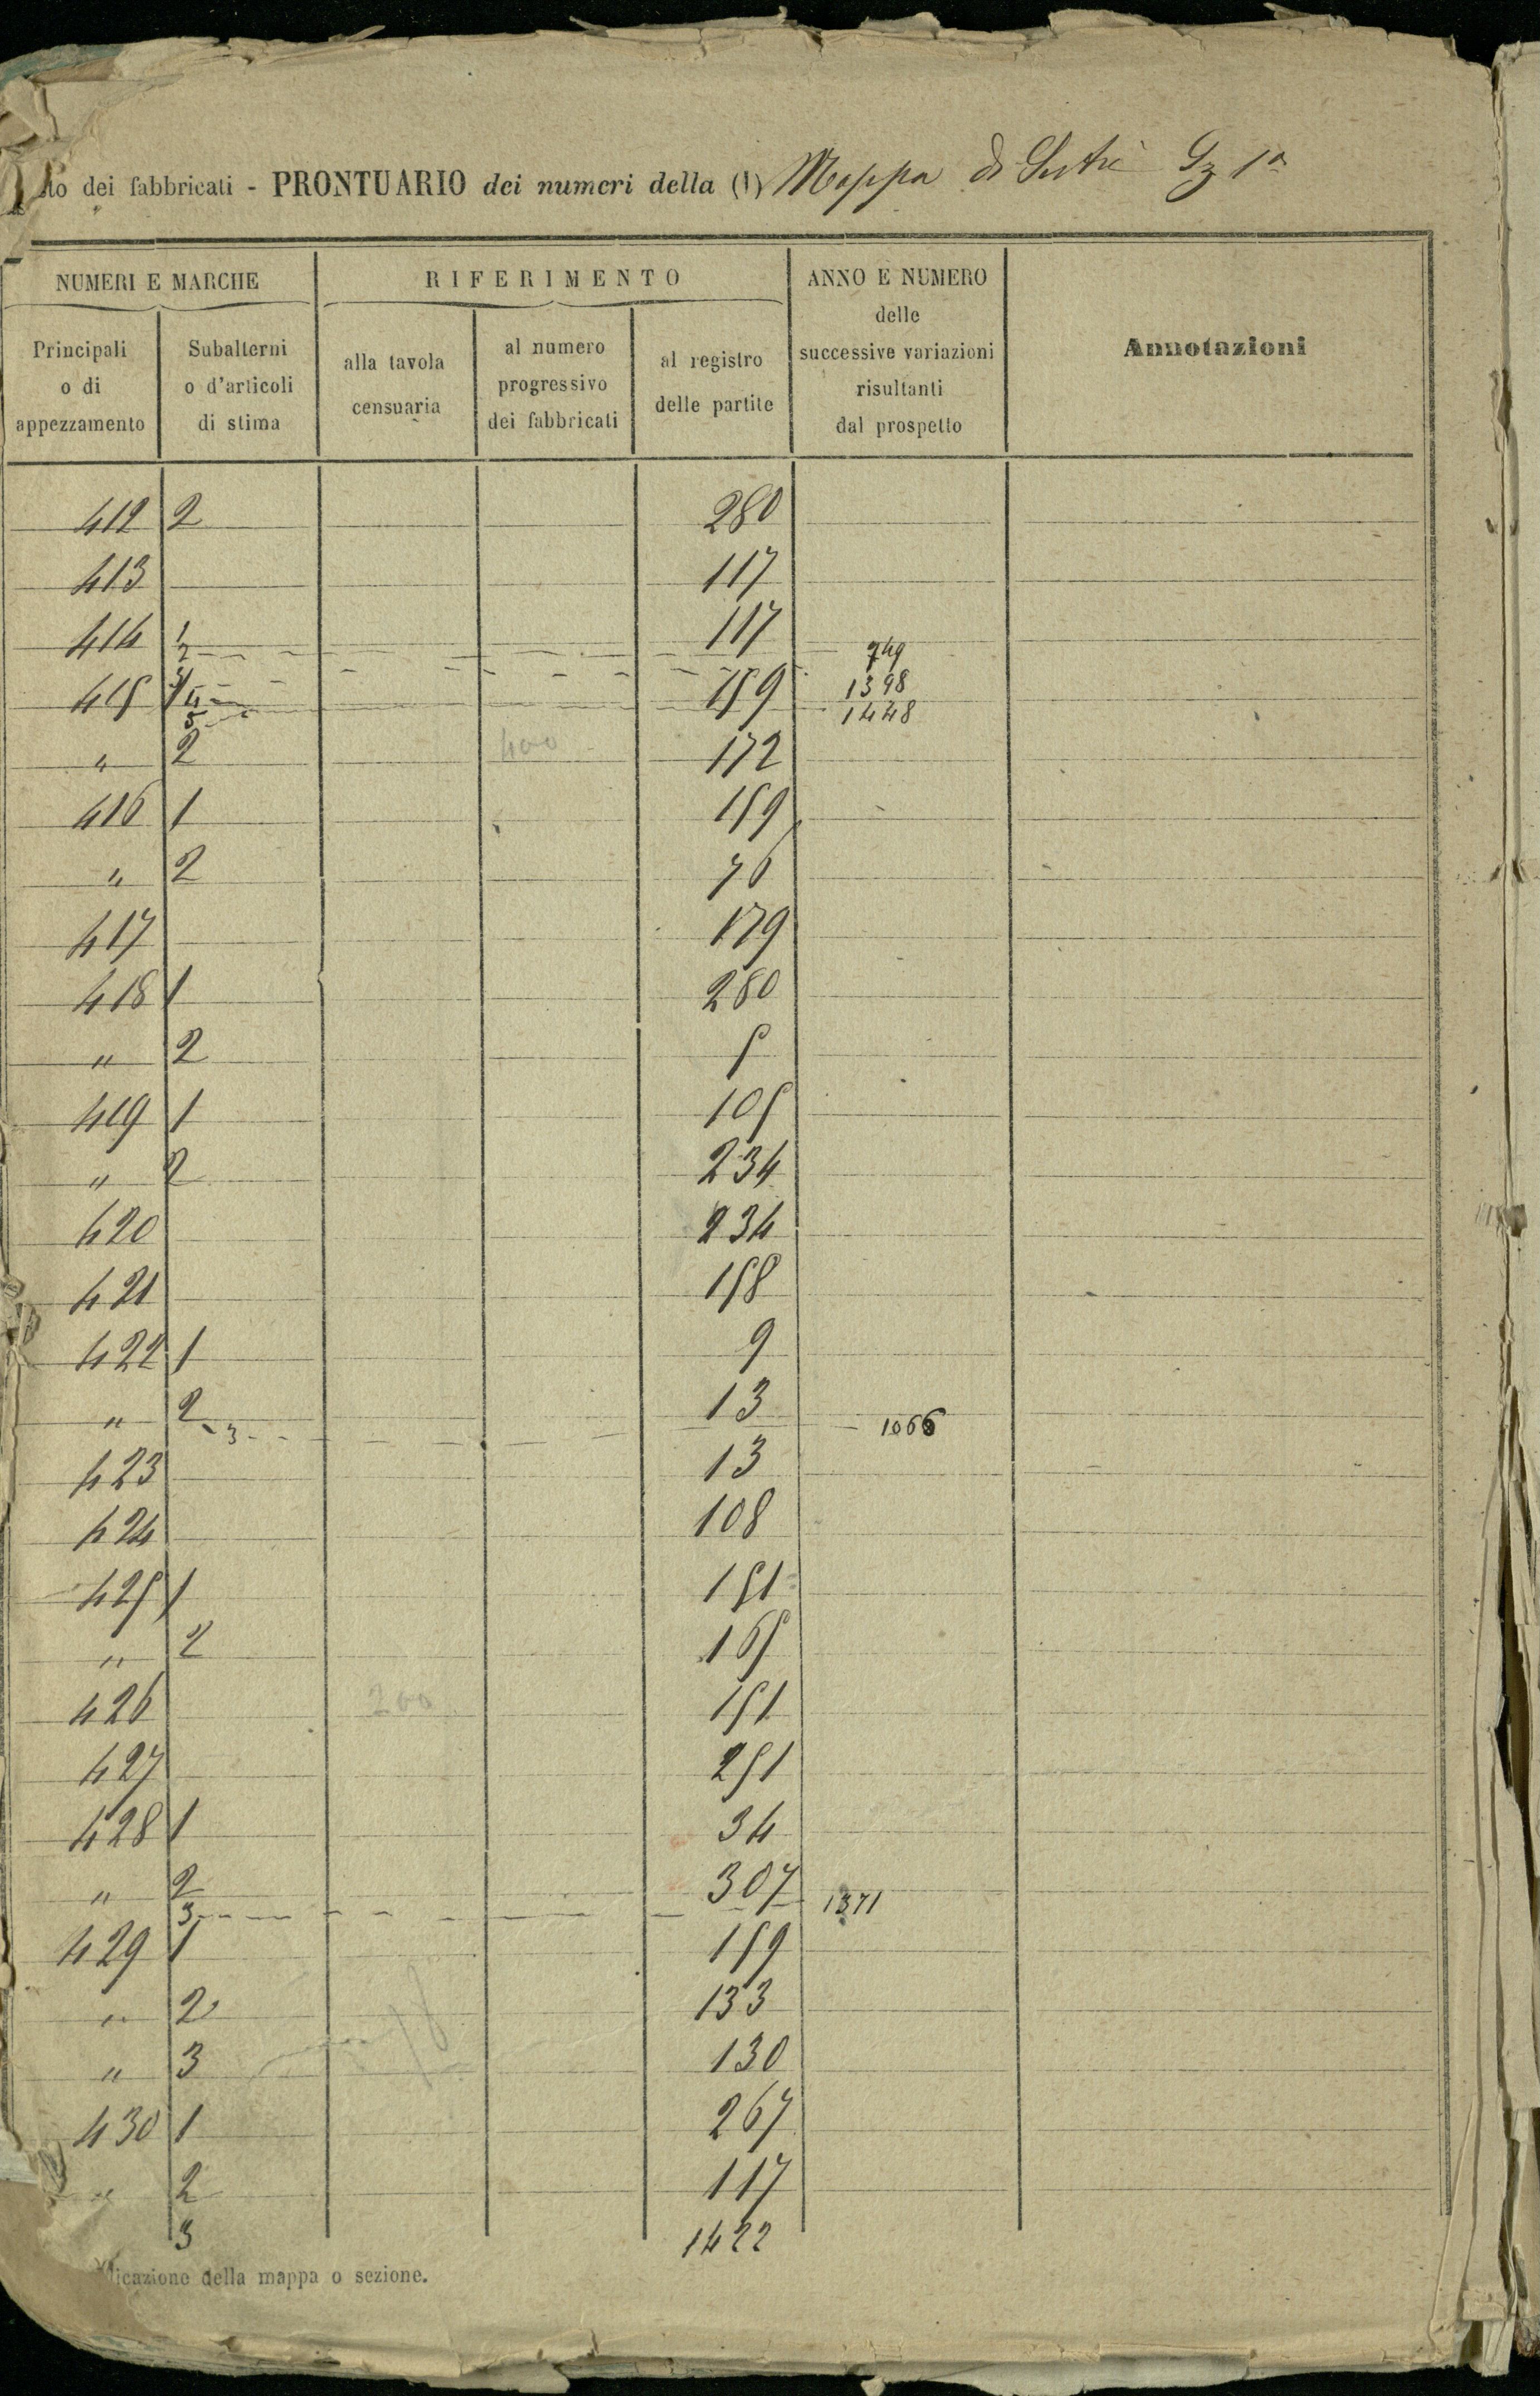 to dei fabbricati - PRONTUARIO dei numeri della (1) Mappa di Sutri Sz 1ª
NUMERI E MARCHE
RIFERIMENTO
ANNO E NUMERO
delle
successive variazioni
risultanti
dal prospetto
Annotazioni
Principali
o di
appezzamento
Subalterni
o d'articoli
di stima
alla tavola
censuaria
al numero
progressivo
dei fabbricati
al registro
delle partite
412 2 280
413 117
414 1 117
2 749
3 1398
415 1 159
4
5 1448
" 2 400 172
416 1 159
" 2 76
417 179
418 1 280
" 2 5
419 1 105
" 2 234
420 234
421 158
422 1 9
" 2 13
3 1066
423 13
424 108
425 1 151
" 2 165
426 200 151
427 251
428 1 34
" 2 307
3 1371
429 1 159
" 2 133
" 3 130
430 1 267
" 2 117
3 1422
dicazione della mappa o sezione.